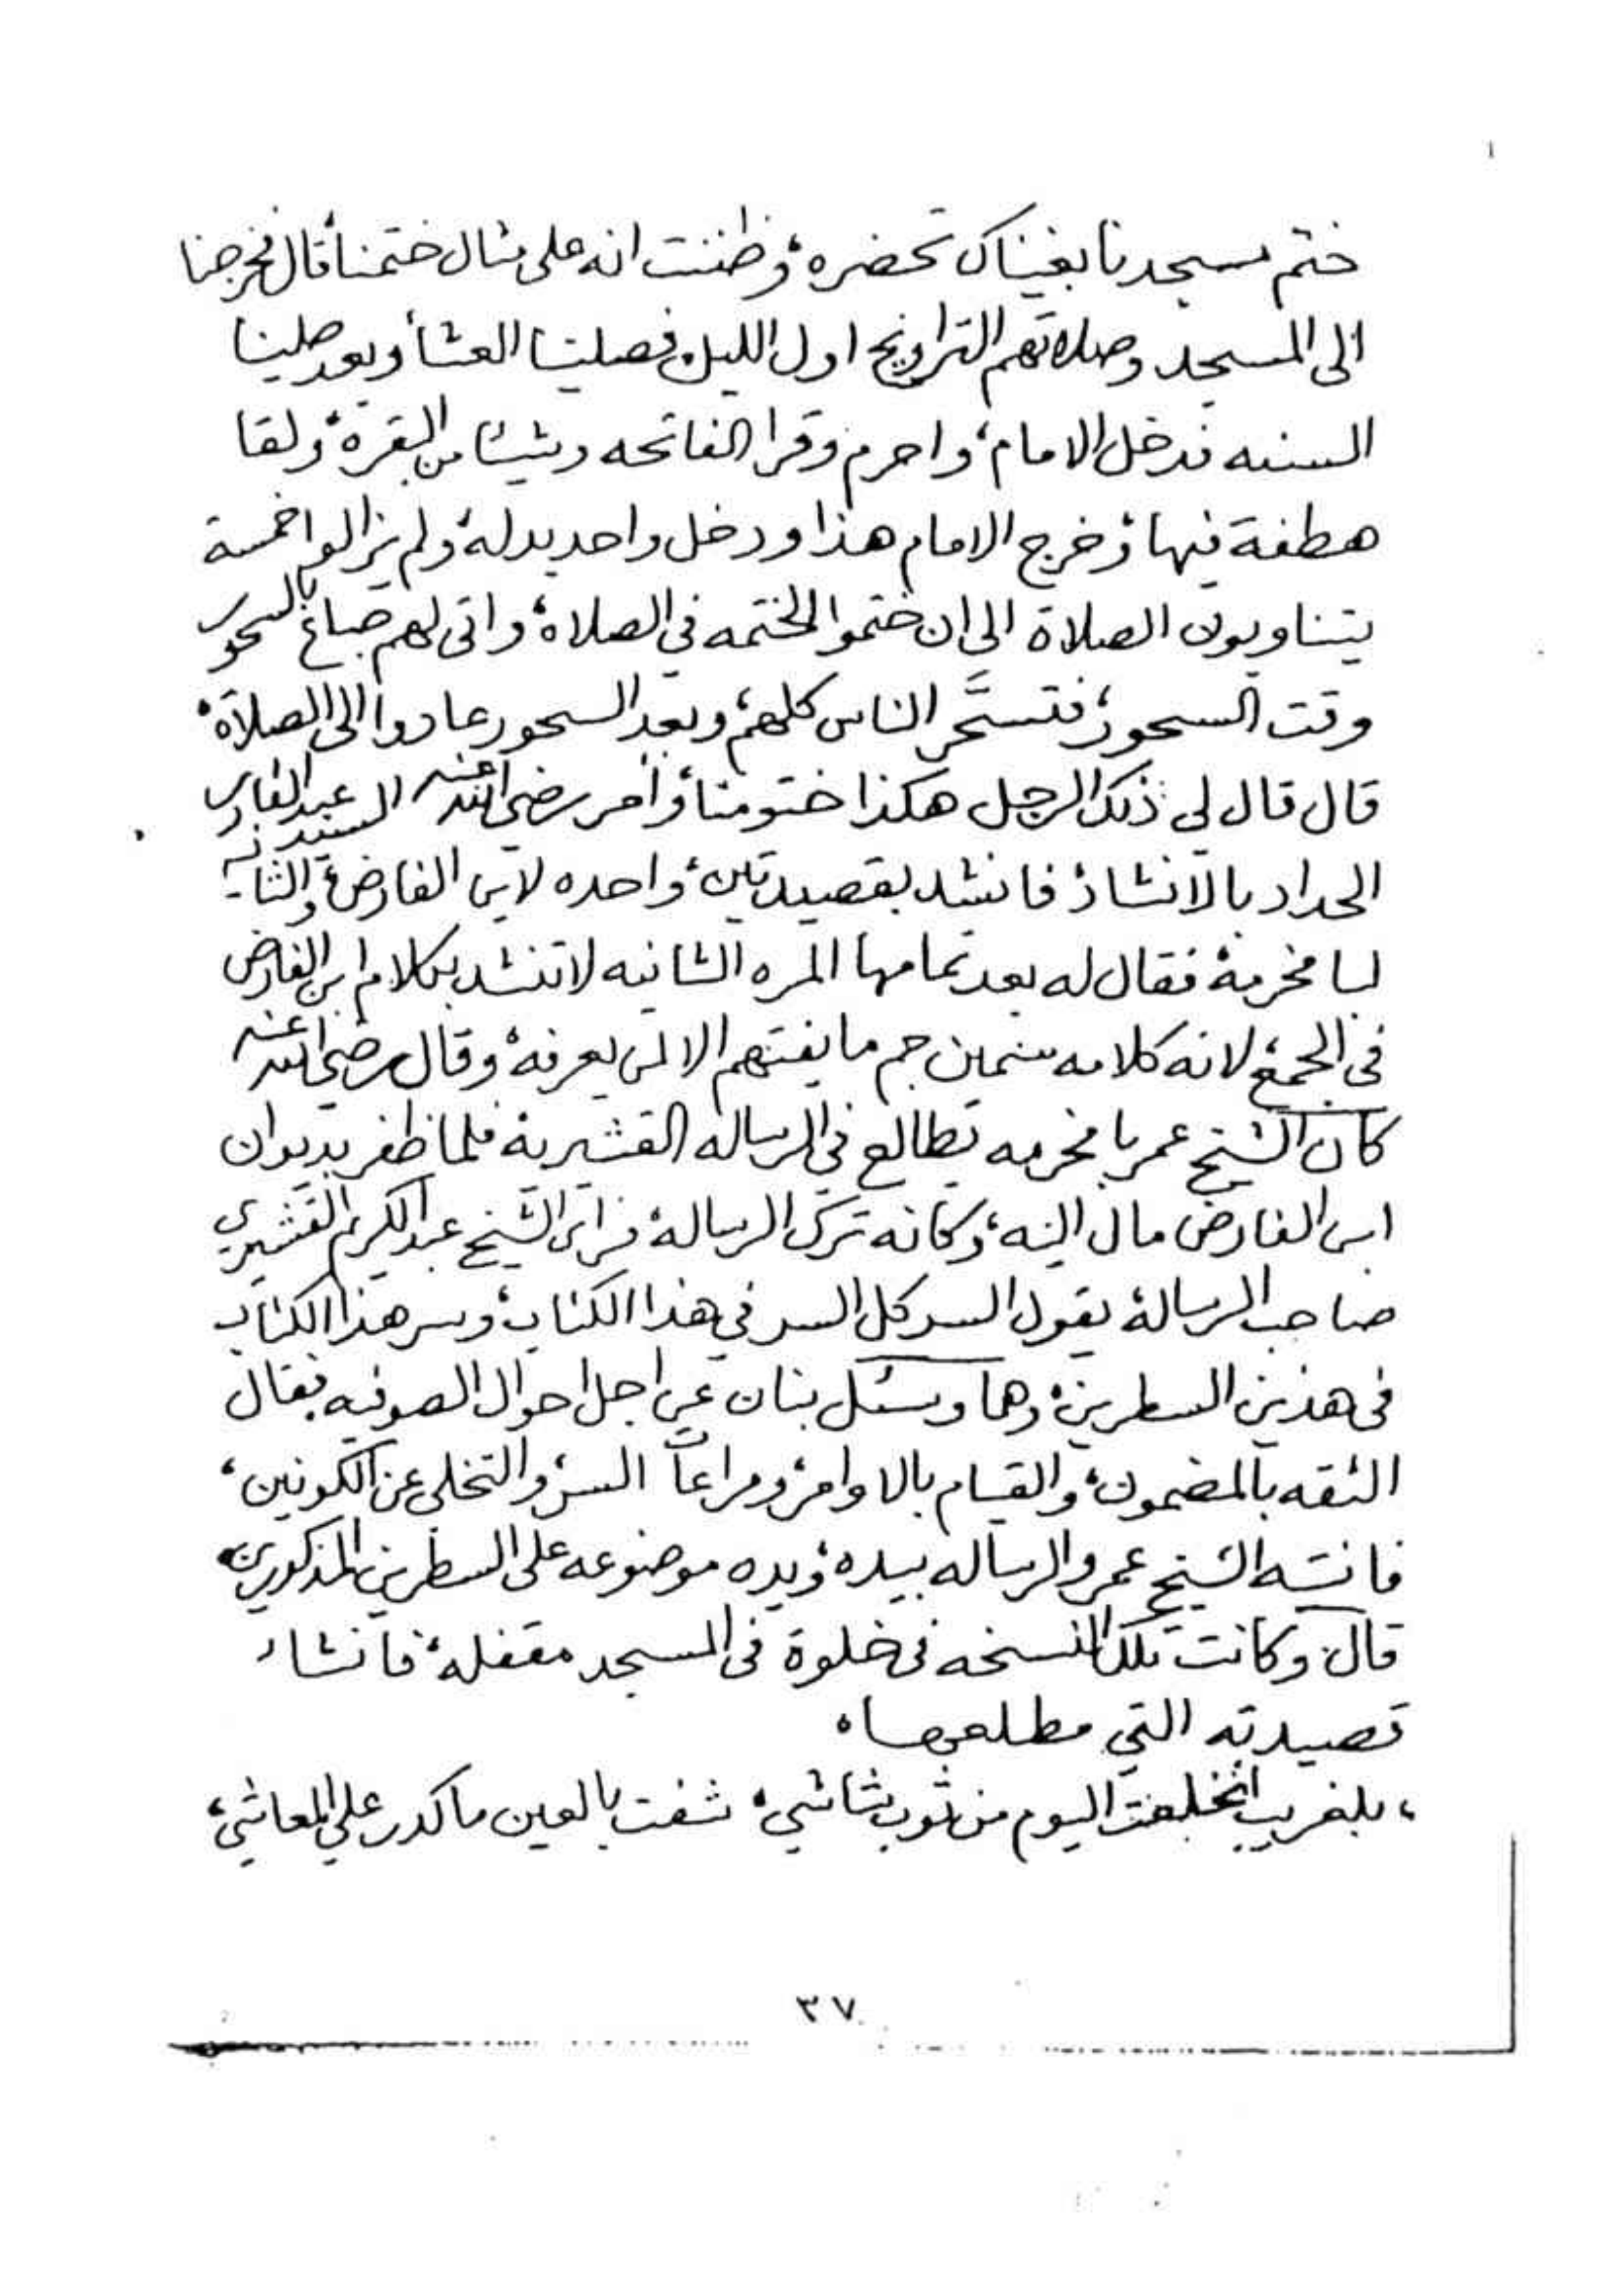 ختم مسجدنا بغيناك تحضره، وظننت انه على مثال ختمنا، قال فخرجنا
الى المسجد وصلاتهم التراويح اول الليل، فصلينا العشاء وبعد صلينا
السنه فدخل الامام، واحرم وقرا الفاتحه وشيئا من البقرة، ولقا
هطفة فيها، وخرج الامام هذا ودخل واحد بدله، ولم يزالوا خمسة
يتناوبون الصلاة الى ان ختموا الختمه في الصلاة، واتى لهم صباغ بالسحور
وقت السحور، فتسحَّر الناس كلهم، وبعد السحور عادوا الى الصلاة،
قال قال لي ذلك الرجل هكذا ختومنا، وأمر رضي الله عنه السيد عبدالقادر
الحداد بالانشاد، فانشد بقصيدتين، واحده لابن الفارض، والثانيه
لبا مخرمة، فقال له بعد تمامها المره الثانيه لا تنشد بكلام ابن الفارض
في الجمع، لانه كلامه سمين جم ما يفتهم الا لمن يعرفه، وقال رضي الله عنه
كان الشيخ عمر با مخرمه يطالع في الرساله القشيرية فلما ظفر بديوان
ابن الفارض مال اليه، وكانه ترك الرسالة، فراى الشيخ عبد الكريم القشيري
صاحب الرسالة يقول السر كل السر في هذا الكتاب، وسر هذا الكتاب
في هذين السطرين، وهما وسئل بنان عن اجل احوال الصوفيه فقال
الثقه بالمضمون، والقيام بالاوامر، ومراعاة السر، والتخلي عن الكونين،
فانتبه الشيخ عمر والرساله بيده، ويده موضوعه على السطرين المذكورين،
قال وكانت تلك النسخه في خلوة في المسجد مقفله، فانشاء
قصيدته التي مطلعها،
، بلغريب انخلعت اليوم من ثوب شاشي، شفت بالعين ما كدر علي المعاشي،
٣٧